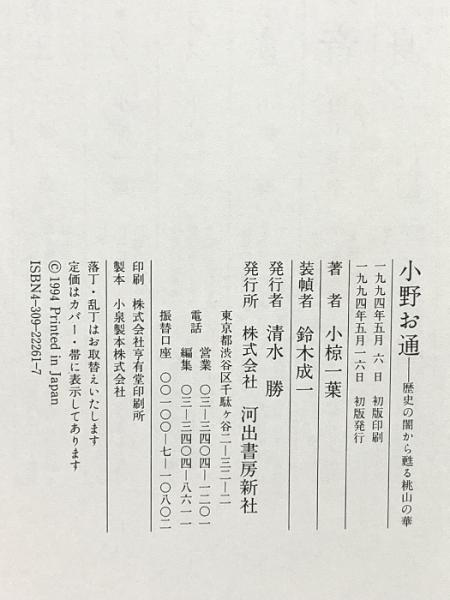 小野お通――歴史の闇から甦る桃山の華
一九九四年五月 六 日 初版印刷
一九九四年五月一六日 初版発行
著 者 小椋一葉
装幀者 鈴木成一
発行者 清水 勝
発行所 株式会社 河出書房新社
東京都渋谷区千駄ヶ谷二―三二―二
電話 営業 〇三―三四〇四―一二〇一
編集 〇三―三四〇四―八六一一
振替口座 〇〇一〇〇―七―一〇八〇二
印刷 株式会社亨有堂印刷所
製本 小泉製本株式会社
落丁・乱丁はお取替えいたします
定価はカバー・帯に表示してあります
©1994 Printed in Japan
ISBN4-309-22261-7